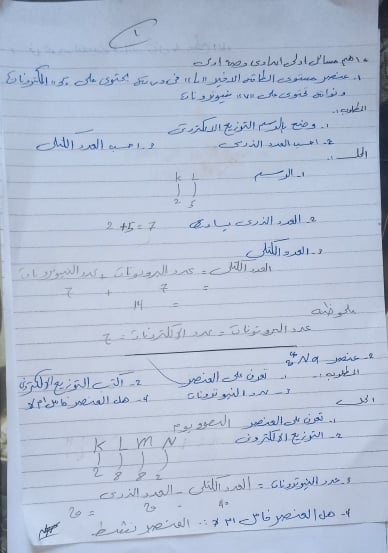 ١
* اهم مسائل اولى اعدادى وحدة اولى
١. عنصر مستوى الطاقة الاخير "L" فى ذرته يحتوى على "5" الكترونات
ونواته تحتوى على "7" نيوترونات
المطلوب :.
١. وضح بالرسم التوزيع الالكترونى
2. احسب العدد الذرى 3. احسب العدد الكتلى
الحل :.
١- الرسم
K L
2 5
2- العدد الذرى يساوى 2+5=7
3- العدد الكتلى
العدد الكتلى = عدد البروتونات + عدد النيوترونات
= 7 + 7
= 14
ملحوظة
عدد البروتونات = عدد الالكترونات = 7
2- عنصر
المطلوب :. ١- تعرف على العنصر 2- اكتب التوزيع الالكترونى
3- عدد النيوترونات 4- هل العنصر خامل ام لا
الحل
١- تعرف على العنصر
2- التوزيع الالكترونى
K L M N
2 8 8 2
3. عدد النيوترونات = العدد الكتلى - العدد الذرى
40 - 20 = 20
4- هل العنصر خامل ام لا :. العنصر نشط